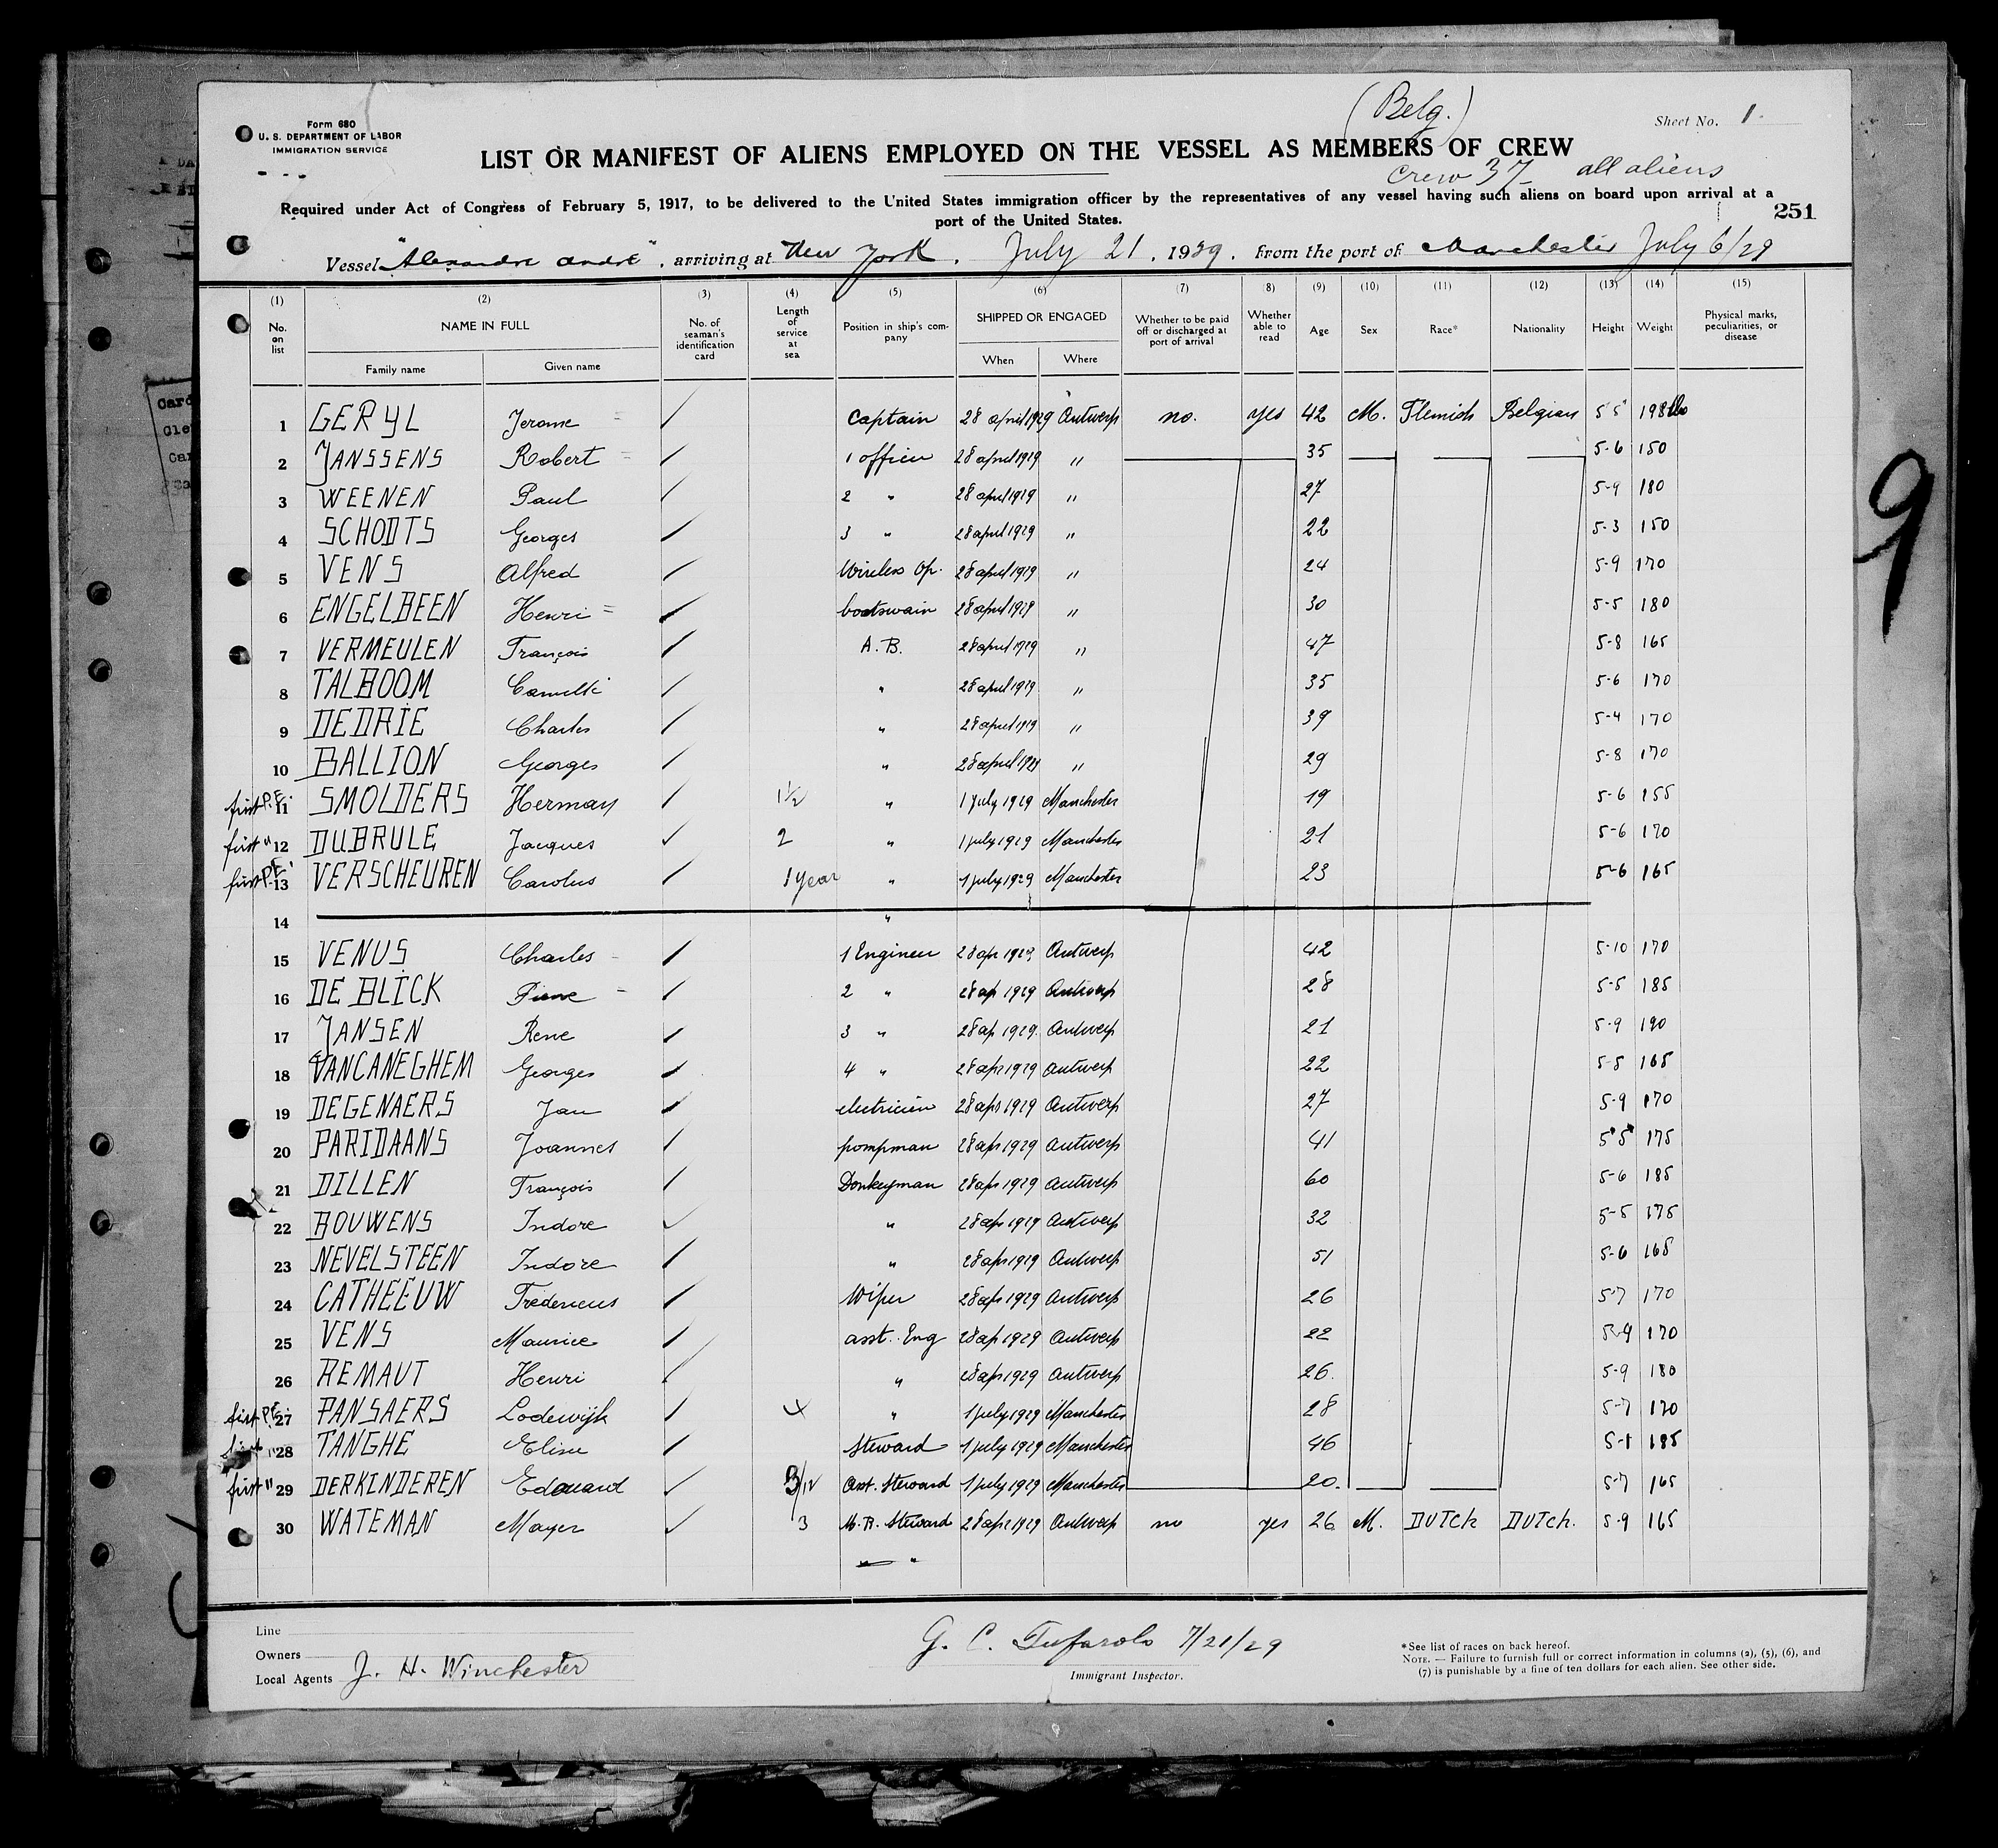 (Belg.)
Form 680
U. S. DEPARTMENT OF LABOR
IMMIGRATION SERVICE
Sheet No. 1.
LIST OR MANIFEST OF ALIENS EMPLOYED ON THE VESSEL AS MEMBERS OF CREW
Crew 37 all aliens
Required under Act of Congress of February 5, 1917, to be delivered to the United States immigration officer by the representatives of any vessel having such aliens on board upon arrival at a
port of the United States.
251
Vessel "Alexandre André", arriving at New York, July 21, 1929, from the port of Manchester July 6/29
(1) (2) (3) (4) (5) (6) (7) (8) (9) (10) (11) (12) (13) (14) (15)
No. on list NAME IN FULL Family name Given name No. of seaman's identification card Length of service at sea Position in ship's company SHIPPED OR ENGAGED When Where Whether to be paid off or discharged at port of arrival Whether able to read Age Sex Race* Nationality Height Weight Physical marks, peculiarities, or disease
1 GERYL Jerome Captain 28 april 1929 Antwerp no. yes 42 M. Flemish Belgian 5 5 198 lbs
2 JANSSENS Robert 1 officer 28 april 1929 " 35 5-6 150
3 WEENEN Paul 2 " 28 april 1929 " 27 5-9 180
4 SCHODTS Georges 3 " 28 april 1929 " 22 5-3 150
5 VENS Alfred Wireless Op. 28 april 1929 " 24 5-9 170
6 ENGELBEEN Henri = boatswain 28 april 1929 " 30 5-5 180
7 VERMEULEN François A.B. 28 april 1929 " 47 5-8 165
8 TALBOOM Camille " 28 april 1929 " 35 5-6 170
9 DEDRIE Charles " 28 april 1929 " 39 5-4 170
10 BALLION Georges " 28 april 1929 " 29 5-8 170
first P.E. 11 SMOLDERS Herman 1½ " 1 july 1929 Manchester 19 5-6 155
first " 12 DUBRULE Jacques 2 " 1 july 1929 Manchester 21 5-6 170
first P.E. 13 VERSCHEUREN Carolus 1 year " 1 july 1929 Manchester 23 5-6 165
14 "
15 VENUS Charles 1 Engineer 28 apr 1929 Antwerp 42 5-10 170
16 DE BLICK Pierre 2 " 28 ap 1929 Antwerp 28 5-5 185
17 JANSEN Rene 3 " 28 ap 1929 Antwerp 21 5-9 190
18 VANCANEGHEM Georges 4 " 28 apr 1929 Antwerp 22 5-5 165
19 DEGENAERS Jan electricien 28 apr 1929 Antwerp 27 5-9 170
20 PARIDAANS Joannes pompman 28 apr 1929 Antwerp 41 5 5 175
21 DILLEN François Donkeyman 28 apr 1929 Antwerp 60 5-6 185
22 BOUWENS Isidore " 28 apr 1929 Antwerp 32 5-5 175
23 NEVELSTEEN Isidore " 28 apr 1929 Antwerp 51 5-6 165
24 CATHEEUW Fredericus Wiper 28 apr 1929 Antwerp 26 5-7 170
25 VENS Maurice asst. Eng 28 ap 1929 Antwerp 22 5-9 170
26 REMAUT Henri " 28 apr 1929 Antwerp 26. 5-9 180
first P.E. 27 PANSAERS Lodewijk " 1 july 1929 Manchester 28 5-7 170
first " 28 TANGHE Elise Steward 1 july 1929 Manchester 46 5-1 185
first " 29 DERKINDEREN Edouard 3/12 Asst. Steward 1 july 1929 Manchester 20. 5-7 165
30 WATEMAN Mayer 3 M.R. Steward 28 apr 1929 Antwerp no yes 26 M. DUTCH DUTCH. 5-9 165
"
Line
Owners
Local Agents J. H. Winchester
G. C. Tufarolo 7/21/29
Immigrant Inspector.
*See list of races on back hereof.
NOTE. — Failure to furnish full or correct information in columns (2), (5), (6), and
(7) is punishable by a fine of ten dollars for each alien. See other side.
9